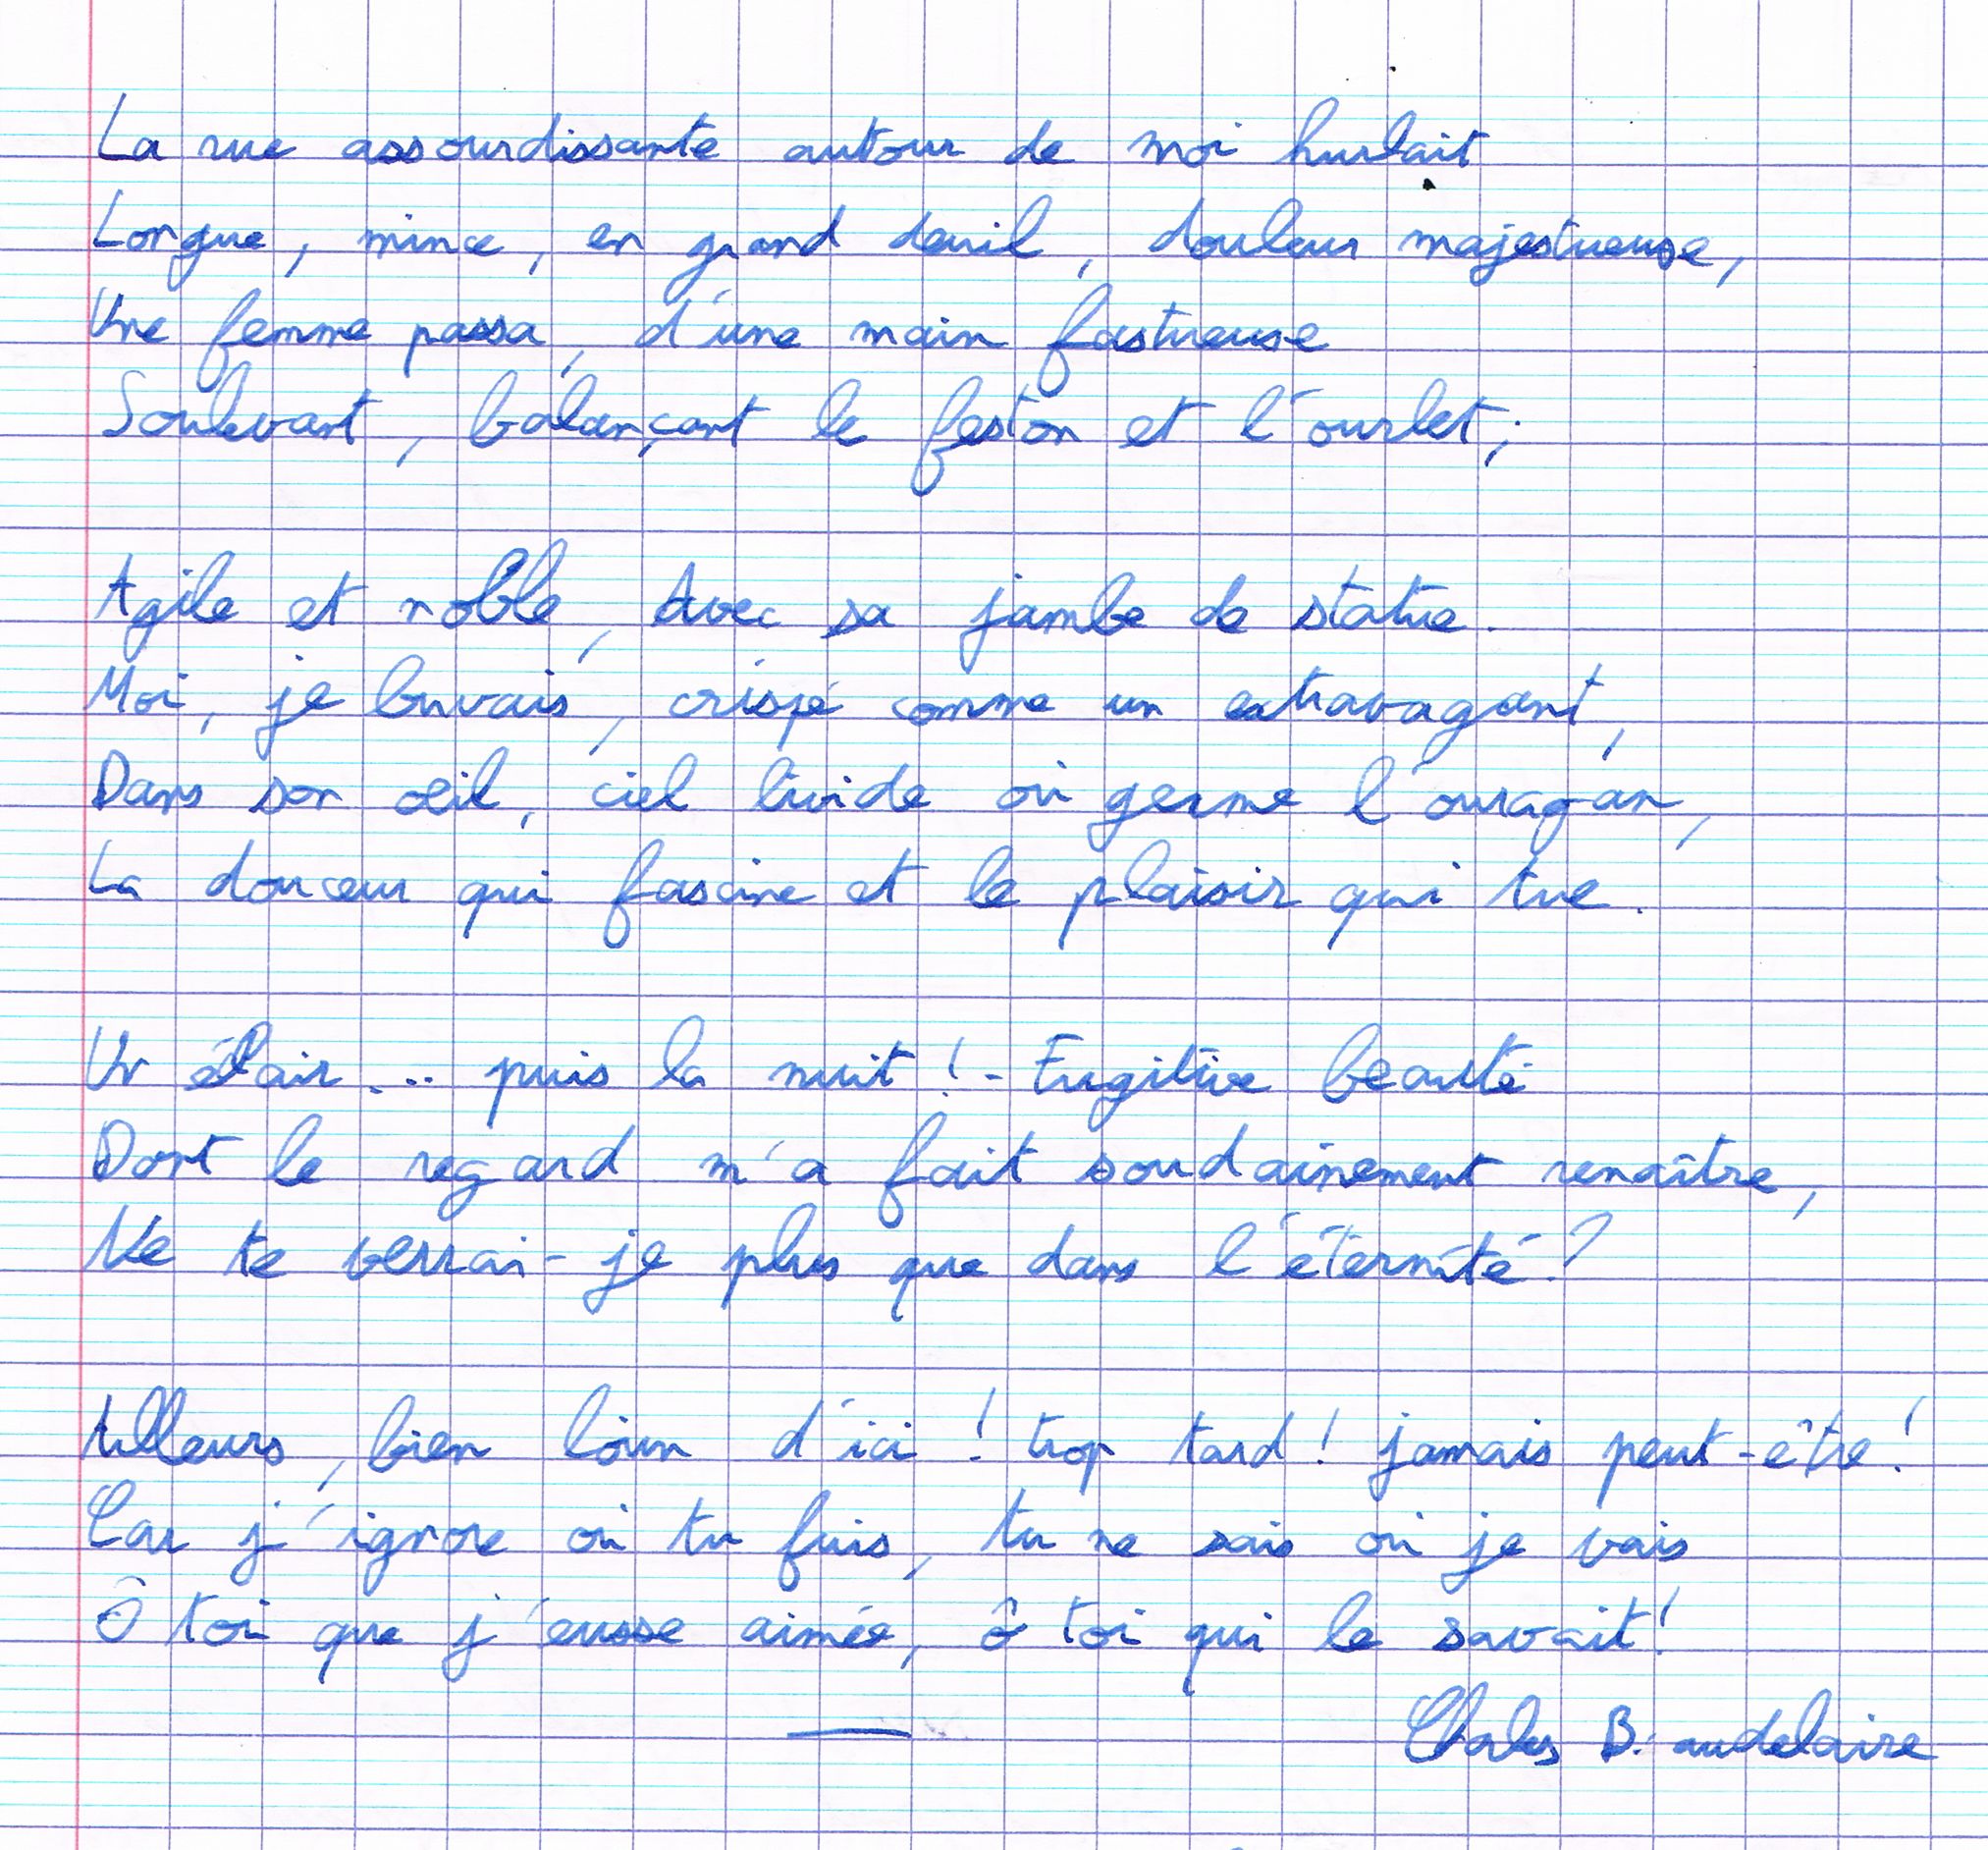 La rue assourdissante autour de moi hurlait
Longue, mince, en grand deuil, douleur majestueuse,
Une femme passa, d'une main fastueuse
Soulevant, balançant le feston et l'ourlet;
Agile et noble, Avec sa jambe de statue.
Moi, je buvais, crispé comme un extravagant,
Dans son œil, ciel livide où germe l'ouragan,
La douceur qui fascine et le plaisir qui tue.
Un éclair... puis la nuit ! - Fugitive beauté
Dont le regard m'a fait soudainement renaître,
Ne te verrai-je plus que dans l'éternité ?
Ailleurs, bien loin d'ici ! trop tard ! jamais peut-être !
Car j'ignore où tu fuis, tu ne sais où je vais
Ô toi que j'eusse aimée, ô toi qui le savait !
Charles B.audelaire